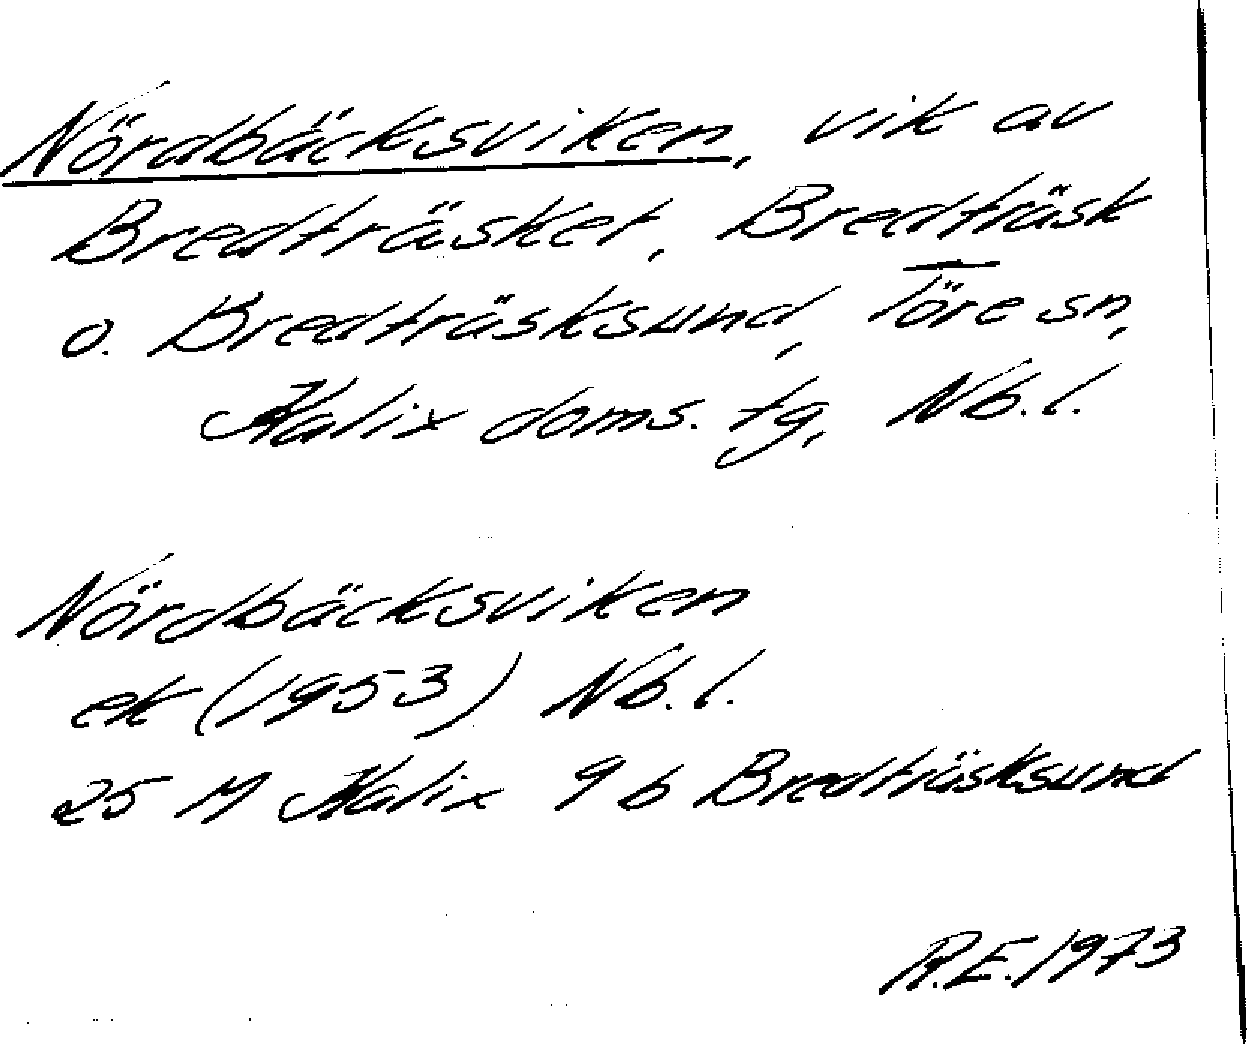 Nördbäcksviken, vik av
Bredträsket, Bredträsk
o. Bredträsksund, Töre sn,
Kalix doms. tg, Nb. l.
Nördbäcksviken
ek (1953) Nb. l.
25 M Kalix 9 b Bredträsksund
R.E. 1973